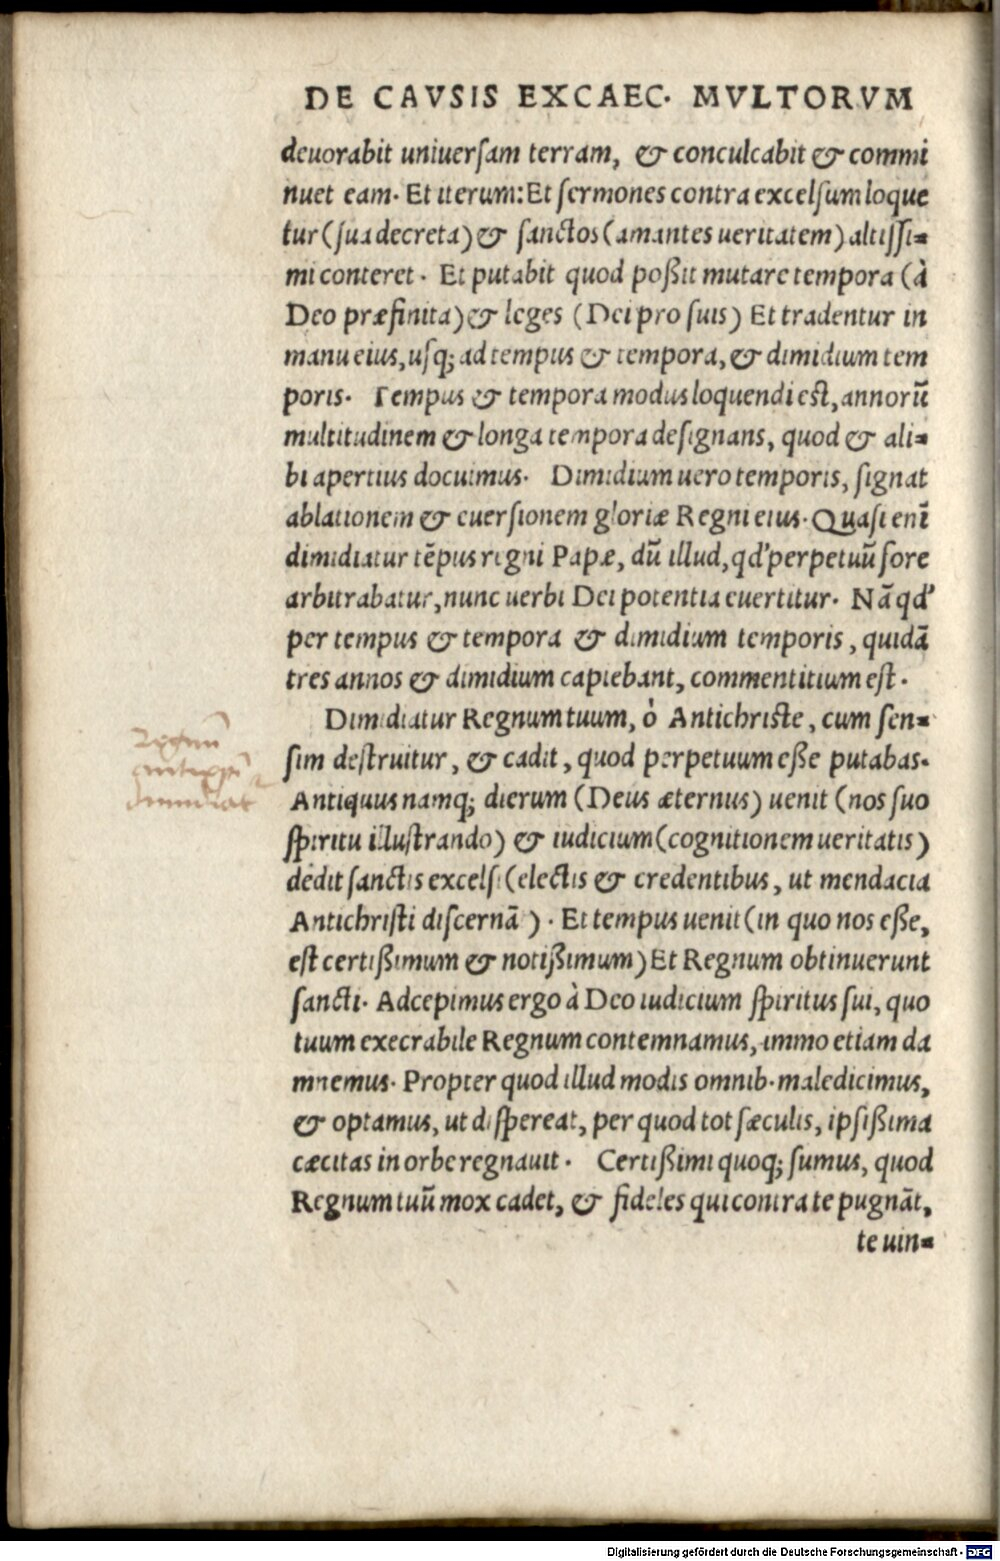 DE CAVSIS EXCAEC. MVLTORVM
deuorabit uniuerſam terram, & conculcabit & commi
nuet eam. Et iterum: Et ſermones contra excelſum loque
tur (ſua decreta) & ſanctos (amantes ueritatem) altiſſi-
mi conteret. Et putabit quod poßit mutare tempora (à
Deo præfinita) & leges (Dei pro ſuis) Et tradentur in
manu eius, uſq; ad tempus & tempora, & dimidium tem
poris. Tempus & tempora modus loquendi eſt, annorū
multitudinem & longa tempora deſignans, quod & ali-
bi apertius docuimus. Dimidium uero temporis, ſignat
ablationem & euerſionem gloriæ Regni eius. Quaſi enī
dimidiatur tēpus regni Papæ, dū illud, qd' perpetuū fore
arbitrabatur, nunc uerbi Dei potentia euertitur. Nā qd'
per tempus & tempora & dimidium temporis, quidā
tres annos & dimidium capiebant, commentitium eſt.
Dimidiatur Regnum tuum, ò Antichriſte, cum ſen-
ſim deſtruitur, & cadit, quod perpetuum eße putabas.
Regnū
antixpi
dimidiat
Antiquus namq; dierum (Deus æternus) uenit (nos ſuo
ſpiritu illuſtrando) & iudicium (cognitionem ueritatis)
dedit ſanctis excelſi (electis & credentibus, ut mendacia
Antichriſti diſcernā). Et tempus uenit (in quo nos eße,
eſt certißimum & notißimum) Et Regnum obtinuerunt
ſancti. Adcepimus ergo à Deo iudicium ſpiritus ſui, quo
tuum execrabile Regnum contemnamus, immo etiam da
mnemus. Propter quod illud modis omnib. maledicimus,
& optamus, ut diſpereat, per quod tot ſæculis, ipſißima
cæcitas in orbe regnauit. Certißimi quoq; ſumus, quod
Regnum tuū mox cadet, & fideles qui contra te pugnāt,
te uin-
Digitalisierung gefördert durch die Deutsche Forschungsgemeinschaft - DFG